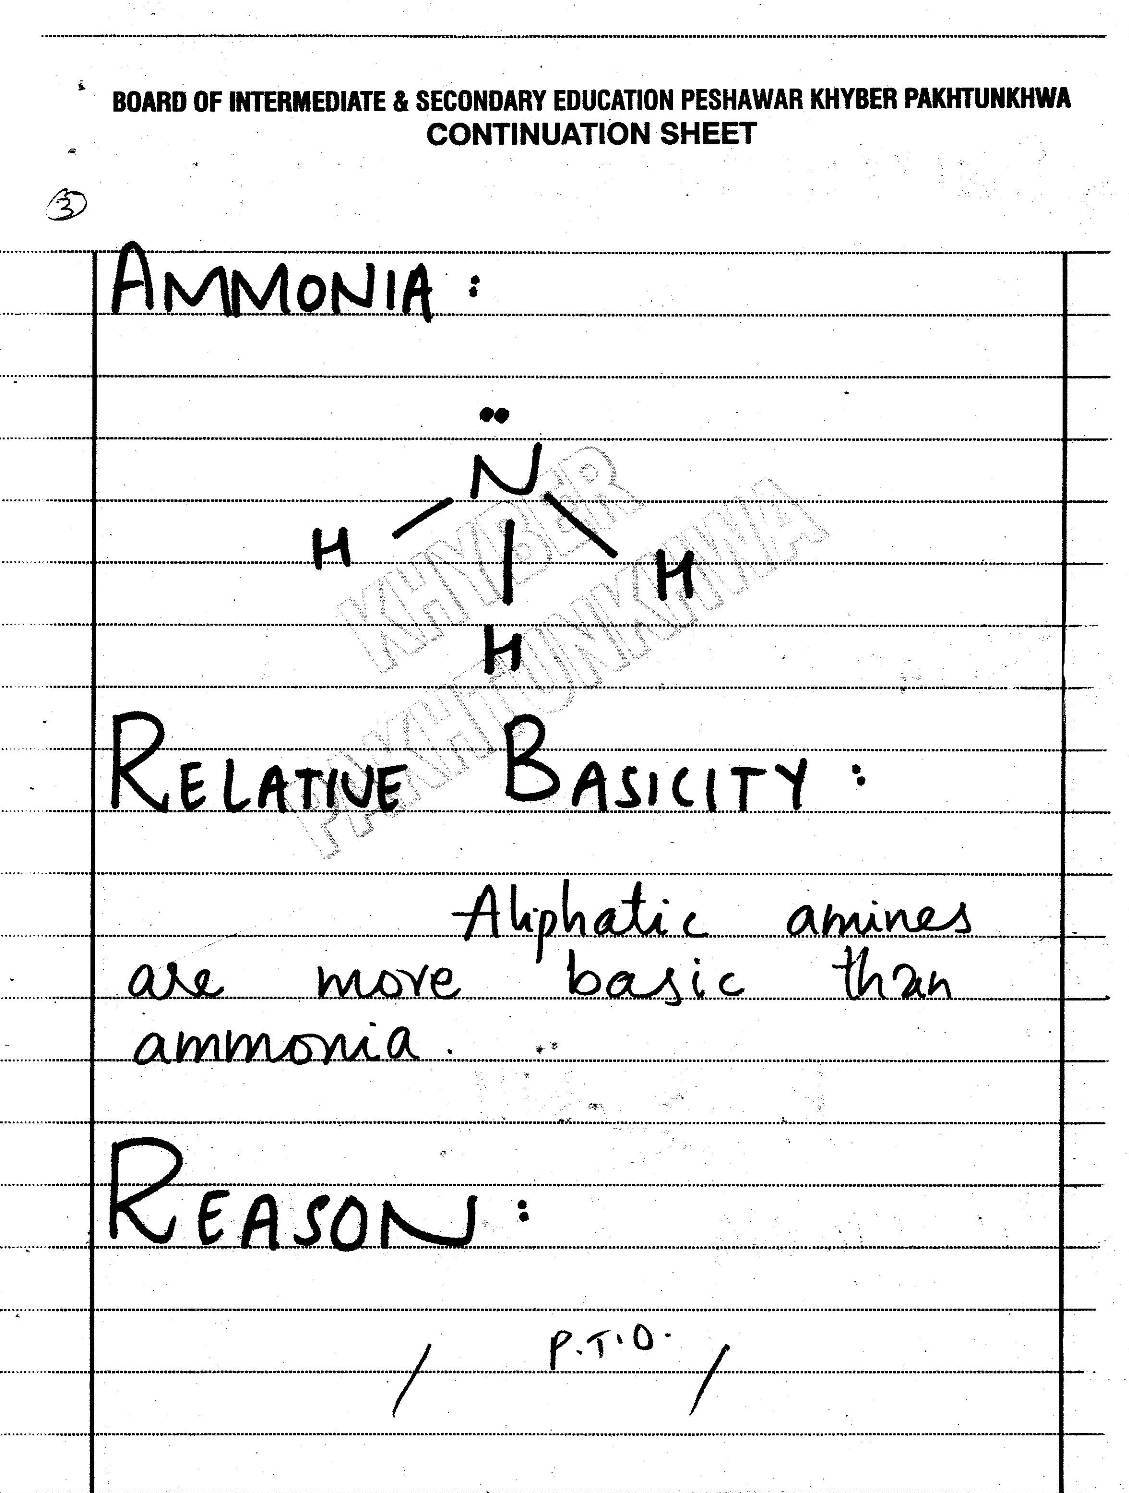 BOARD OF INTERMEDIATE & SECONDARY EDUCATION PESHAWAR KHYBER PAKHTUNKHWA
CONTINUATION SHEET
3
AMMONIA:
••
N
H H
H
KHYBER
PAKHTUNKHWA
RELATIVE BASICITY:
Aliphatic amines
are more basic than
ammonia.
REASON:
/ P.T.O. /